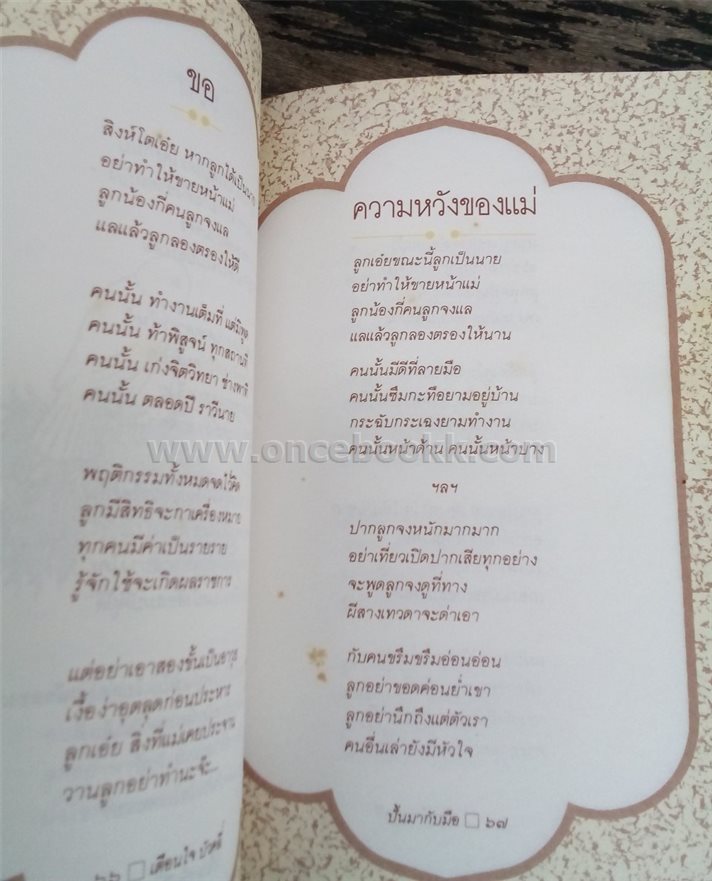 ขอ
สิงห์โตเอ๋ย หากลูกได้เป็นนาย
อย่าทำให้ขายหน้าแม่
ลูกน้องกี่คนลูกจงแล
แลแล้วลูกลองตรองให้ดี
คนนั้น ทำงานเต็มที่ แต่มีพูด
คนนั้น ท้าพิสูจน์ ทุกสถานที่
คนนั้น เก่งจิตวิทยา ช่างพาที
คนนั้น ตลอดปี ราวีนาย
พฤติกรรมทั้งหมดจดไว้คิด
ลูกมีสิทธิจะกาเครื่องหมาย
ทุกคนมีค่าเป็นรายราย
รู้จักใช้จะเกิดผลราชการ
แต่อย่าเอาสองขั้นเป็นอาวุธ
เงื้อง่าอุตลุดก่อนประหาร
ลูกเอ๋ย สิ่งที่แม่เคยประจาน
วานลูกอย่าทำนะจ๊ะ..
๖๖ □ เตือนใจ บัวคลี่
ความหวังของแม่
ลูกเอ๋ยขณะนี้ลูกเป็นนาย
อย่าทำให้ขายหน้าแม่
ลูกน้องกี่คนลูกจงแล
แลแล้วลูกลองตรองให้นาน
คนนั้นมีดีที่ลายมือ
คนนั้นซึมกะทือยามอยู่บ้าน
กระฉับกระเฉงยามทำงาน
คนนั้นหน้าด้าน คนนั้นหน้าบาง
ฯลฯ
ปากลูกจงหนักมากมาก
อย่าเที่ยวเปิดปากเสียทุกอย่าง
จะพูดลูกจงดูที่ทาง
ผีสางเทวดาจะด่าเอา
กับคนขรึมขรึมอ่อนอ่อน
ลูกอย่าขอดค่อนย่ำเขา
ลูกอย่านึกถึงแต่ตัวเรา
คนอื่นเล่ายังมีหัวใจ
ปั้นมากับมือ □ ๖๗
www.oncebookk.com